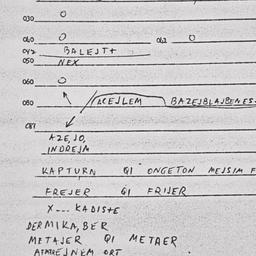 030 O
040 O 042 O
047 BALEJT+
050 NEX
060 O
080 ACEJLEM BAZEJBLAJBENES
087
AZEJO,
INDREJM
KAPTURN QI ONGETON MEJSIM F
FREJER QI FRIJER
X--- KADISTE
DERMIKA, BER
METAJER QI METAER
ORT